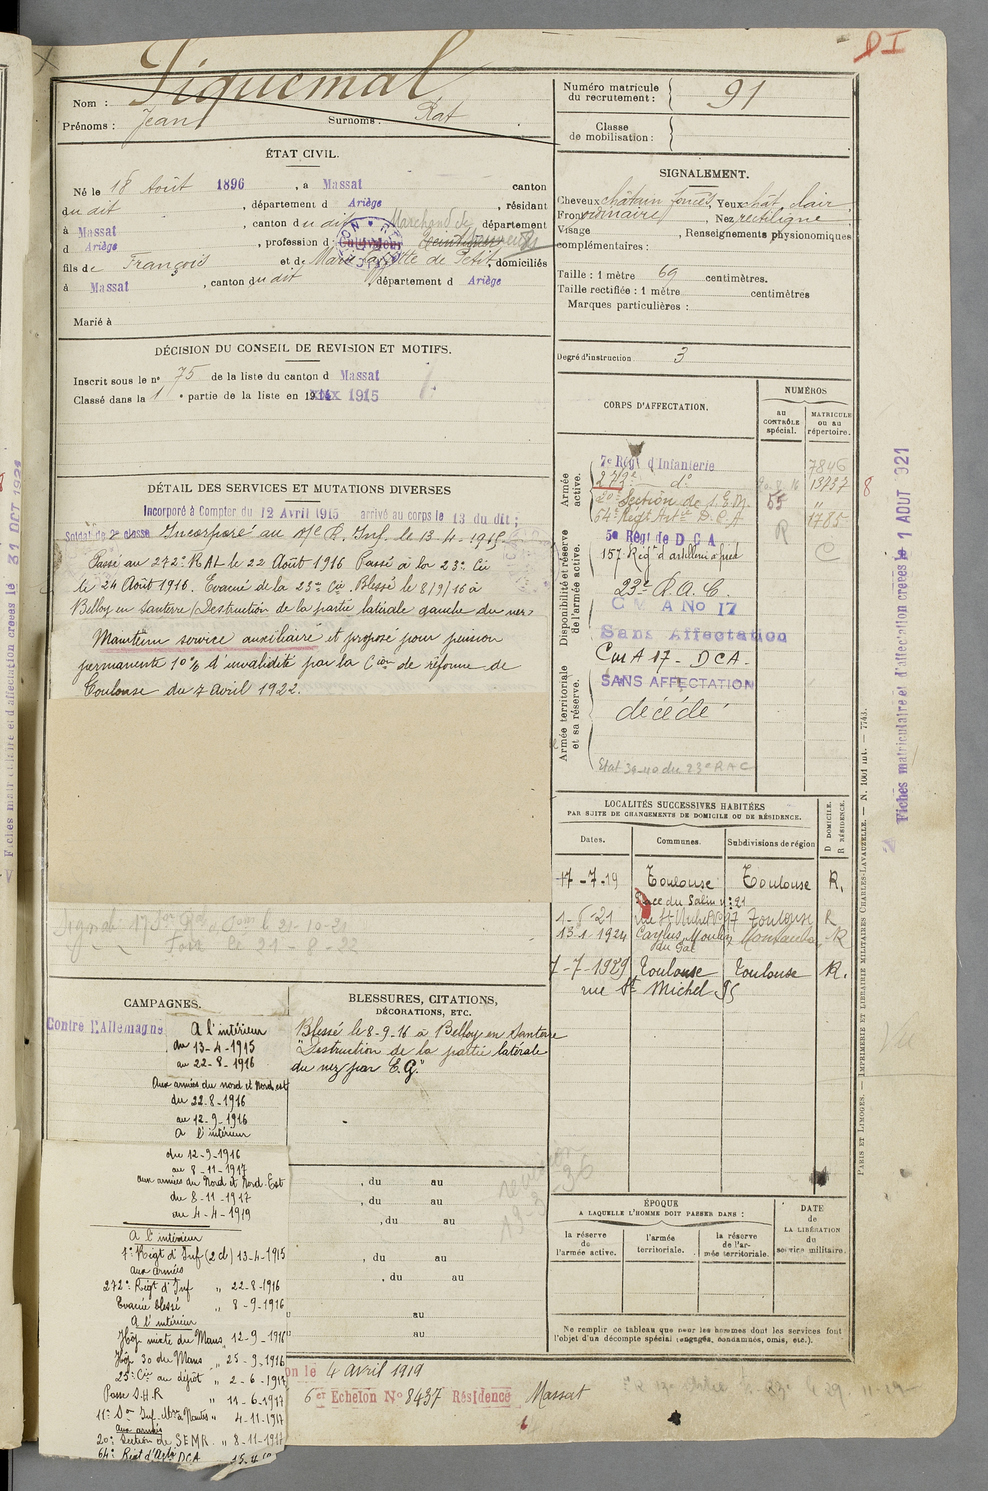 D I
Piquemal
Nom :
Prénoms : Jean Surnoms : Rat
Numéro matricule du recrutement : 91
Classe de mobilisation :
ÉTAT CIVIL.
Né le 18 Août 1896, à Massat canton
du dit, département d Ariège, résidant
à Massat, canton du dit département
d Ariège, profession d Cultivateur Marchand de
fils de François et de Marie, domiciliés
à Massat, canton du dit, département d Ariège
Marié à
SIGNALEMENT.
Cheveux châtain foncé, Yeux chât. clair
Front ordinaire, Nez rectiligne
Visage, Renseignements physionomiques
complémentaires :
Taille : 1 mètre 69 centimètres.
Taille rectifiée : 1 mètre centimètres
Marques particulières :
Degré d'instruction 3
DÉCISION DU CONSEIL DE REVISION ET MOTIFS.
Inscrit sous le n° 75 de la liste du canton d Massat
Classé dans la 1e partie de la liste en 1915
CORPS D'AFFECTATION.
NUMÉROS
au CONTRÔLE spécial.
MATRICULE ou au répertoire.
Armée active.
7e Régt d'Infanterie 7846
273e d° 13737
20e Section de S.E.M. 55
64e Régt Artie D.C.A 1785
Disponibilité et réserve de l'armée active.
5e Régt de D C A
157 Régt d'artillerie à pied
R
C
23e R.A.C.
C M A No 17
Sans Affectation
Cm A 17 - DCA -
Armée territoriale et sa réserve.
SANS AFFECTATION
décédé
Etat 39-40 du 23e RAC
DÉTAIL DES SERVICES ET MUTATIONS DIVERSES
Incorporé à Compter du 12 Avril 1915 arrivé au corps le 13 du dit ;
Soldat de 2e classe Incorporé au R. Inf. le 13-4-1915
Passé au 272e R.I. le 22 Août 1916 Passé à la 23e Cie
le 24 Août 1916. Evacué de la 23e Cie Blessé le 8/9/16 à
Belloy en Santerre (Destruction de la partie latérale gauche du nez)
Maintenu service auxiliaire et proposé pour pension
permanente 10% d'invalidité par la Cion de réforme de
Toulouse du 4 avril 1922.
le 21-10-21
Foix le 21-8-22
LOCALITÉS SUCCESSIVES HABITÉES
PAR SUITE DE CHANGEMENTS DE DOMICILE OU DE RÉSIDENCE.
Dates. Communes. Subdivisions de région D DOMICILE. R RÉSIDENCE.
17-7-19 Toulouse Toulouse R.
Place du Salin n° 21
1-6-21 rue St 97 Toulouse R
13-1-1924 Caylus Moulin du Gac Montauban R
7-7-1929 Toulouse Toulouse R.
rue St Michel 95
CAMPAGNES.
Contre l'Allemagne
A l'intérieur
du 13-4-1915
au 22-8-1916
Aux armées du nord et Nord est
du 22-8-1916
au 12-9-1916
A l'intérieur
du 12-9-1916
au 8-11-1917
aux armées du Nord et Nord-Est
du 8-11-1917
au 4-4-1919
A l'intérieur
1er Régt d'Inf (2d) 13-4-1915
aux armées
272e Régt d'Inf " 22-8-1916
Evacué blessé " 8-9-1916
A l'intérieur
Hôp mixte du Mans " 12-9-1916
Hôp 30 du Mans " 25-9-1916
25e Cie au dépôt " 2-6-1917
Passe S.H.R " 11-6-1917
11e Son Inf. Mre à Nantes " 4-11-1917
aux armées
20e Section de SEMR. " 8-11-1917
64e Régt d'Arto DCA
BLESSURES, CITATIONS,
DÉCORATIONS, ETC.
Blessé le 8-9-16 à Belloy en Santerre
"Destruction de la partie latérale
du nez par E.G."
, du au
, du au
, du au
, du au
, du au
au
au
révision
19-3-36
ÉPOQUE
A LAQUELLE L'HOMME DOIT PASSER DANS :
DATE de LA LIBÉRATION du service militaire.
la réserve de l'armée active.
l'armée territoriale.
la réserve de l'armée territoriale.
Ne remplir ce tableau que pour les hommes dont les services font
l'objet d'un décompte spécial (engagés, condamnés, omis, etc.).
on le 4 avril 1919
6er Echelon No 8437 Résidence Massat
8
Fiches matriculaire et d'affectation créées le 1 AOUT 1921
Fiches matriculaire et d'affectation créées le 31 OCT 1921
PARIS ET LIMOGES. — IMPRIMERIE ET LIBRAIRIE MILITAIRES CHARLES-LAVAUZELLE. — N. 1001 int. — 7743.
Vu